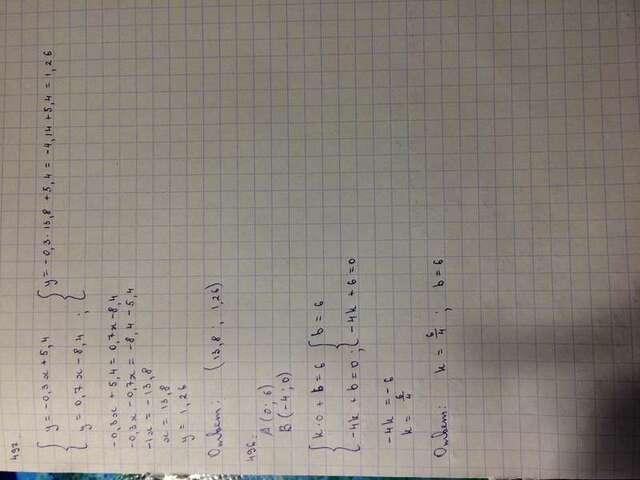 492.
y = -0,3x + 5,4
y = 0,7x - 8,4 ;
y = -0,3 · 13,8 + 5,4 = -4,14 + 5,4 = 1,26
-0,3x + 5,4 = 0,7x - 8,4
-0,3x - 0,7x = -8,4 - 5,4
-1x = -13,8
x = 13,8
y = 1,26
Ответ: (13,8 ; 1,26)
496.
A (0 ; 6)
B (-4 ; 0)
k·0 + b = 6
-4k + b = 0 ;
b = 6
-4k + 6 = 0
-4k = -6
k = 6/4
Ответ: k = 6/4 ; b = 6